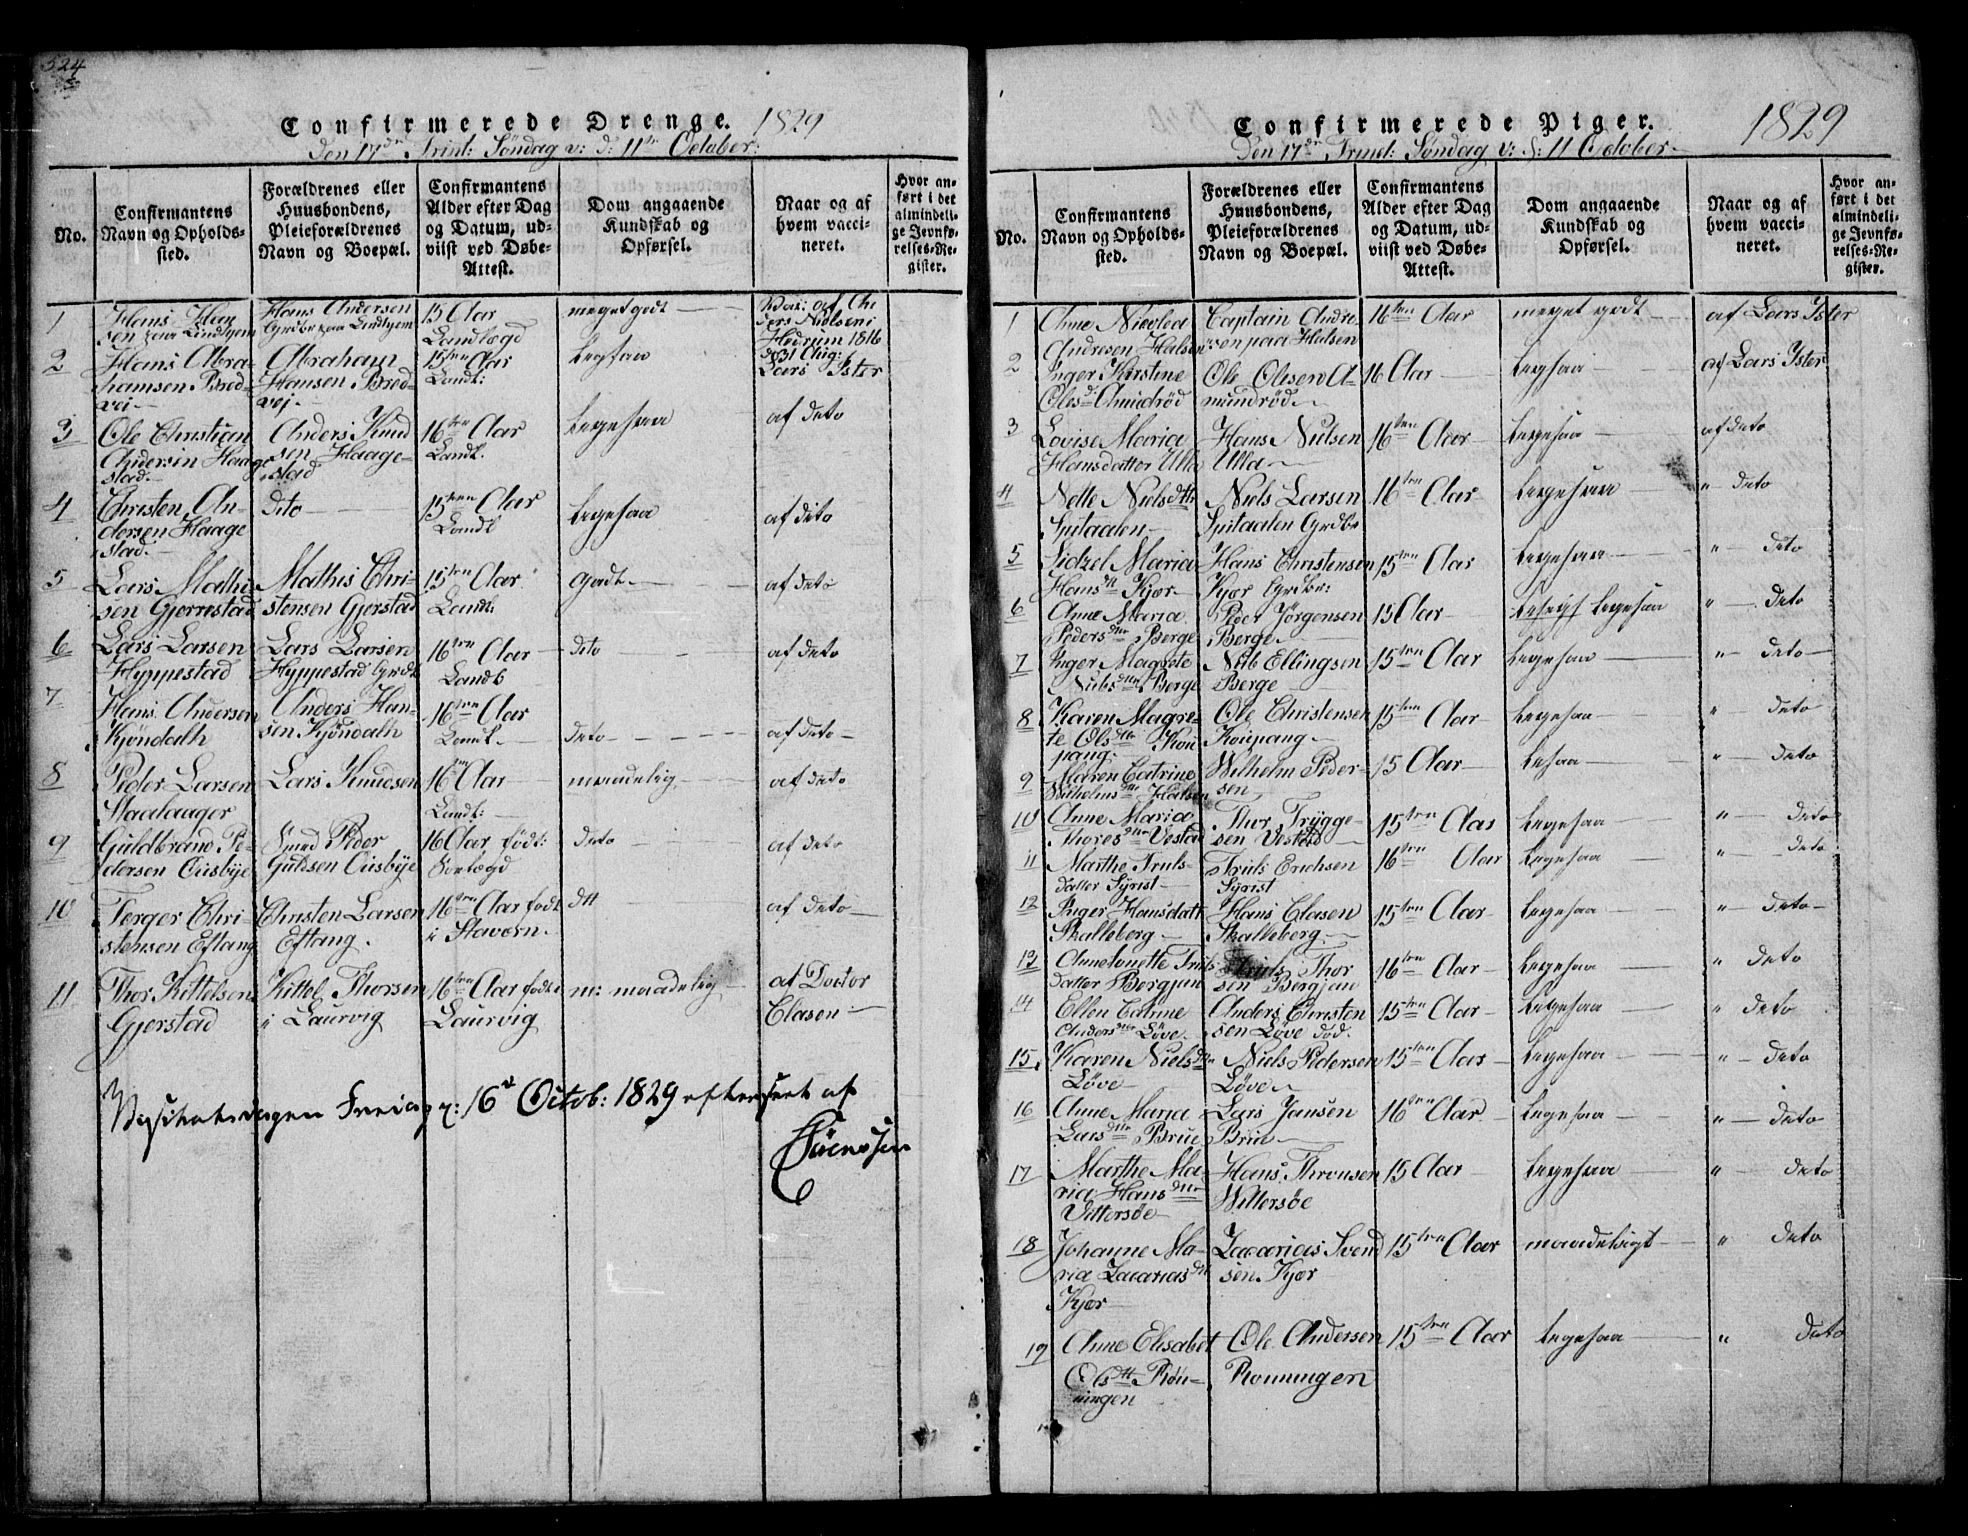 324
Confirmerede Drenge. 1829
Den 17de Trint: Søndag v: d: 11te October:
No.
Confirmantens Navn og Opholdssted.
Forældrenes eller Huusbondens, Pleieforældrenes Navn og Boepæl.
Confirmantens Alder efter Dag og Datum, udviist ved Døbe-Attest.
Dom angaaende Kundskab og Opførsel.
Naar og af hvem vaccineret.
Hvor anført i det almindelige Jevnførelses-Register.
1 Hans Hansen paa Lindhjem Hans Andersen Grdbr paa Lindhjem 15 Aar Landlægd meget godt Vac: af Anders Nielsen i Hedrum 1816 d 31 Aug:
2 Hans Abrahamsen Bredvei Abraham Hansen Bredvej 15ten Aar Landl: ligesaa Lars Ister
3 Ole Christian Andersen Haagestad Anders Knudsen Haagestad 16ten Aar Landl. ligesaa af deto
4 Christen Andersen Haagestad dito 15ten Aar Landl ligesaa af dito
5 Lars Mathisen Gjerrestad Mathis Christensen Gjerstad 15ten Aar Landl: godt af deto
6 Lars Larsen Hyppestad Lars Larsen Hyppestad Grdb 16ten Aar Landl deto af deto
7 Hans Andersen Kjøndalh Anders Hansen Kjøndalh 16ten Aar Landl. deto af deto
8 Peder Larsen Lars Knudsen 16ten Aar Landl: maadelig af deto
9 Guldbrand Pedersen Ousbye Smed Peder Guldsen Ousbye 16 Aar født: deto af deto
10 Terger Christensen Eftang Christen Larsen Eftang. 16ten Aar født i Stavern. dtt af deto
11 Thor Kittelsen Gjerstad Kittel Thorsen i Laurvig 16ten Aar født i Laurvig m: maadelig af Doctor Clasen
Visitatsdagen Freiag d: 16de Octob: 1829 efterseet af
Sørenssen
Confirmerede Piger. 1829
Den 17de Trinet: Søndag v: d: 11 October
No.
Confirmantens Navn og Opholdssted.
Forældrenes eller Huusbondens, Pleieforældrenes Navn og Boepæl.
Confirmantens Alder efter Dag og Datum, udviist ved Døbe-Attest.
Dom angaaende Kundskab og Opførsel.
Naar og af hvem vaccineret.
Hvor anført i det almindelige Jevnførelses-Register.
1 Anne Nicolea Andresen Halsen Captain Andresen paa Halsen 16ten Aar meget godt af Lars Yster
2 Inger Kirstine Olesd Amundrød Ole Olesen Amundrød 16 Aar ligesaa af Lars Yster
3 Lovise Maria Hansdatter Ulla Hans Nielsen Ulla 16ten Aar ligesaa af deto
4 Nelle Nielsdttr Spitaalen Niels Larsen Spitaalen Grdbr 16ten Aar ligesaa " deto
5 Sidzel Maria Hansdtt Kjær Hans Christensen Kjær Grdbr: 15ten Aar ligesaa " deto
6 Anne Maria Pedersdttr Berge Peder Jørgensen Berge 15 Aar ligesaa " deto
7 Inger Magrete Nielsdttr Berge Niels Ellingsen Berge 15ten Aar ligesaa " deto
8 Karen Magrete Olsdttr Koupang Ole Christensen Koupang 15ten Aar ligesaa " deto
9 Maren Catrine Wilhelmsdttr Halsen Wilhelm Pedersen 15 Aar lesaa " deto
10 Anne Maria Thoresdttr Vestad Thor Tryggesen Vestad 15ten Aar ligesaa " deto
11 Marthe Trulsdatter Syrist Truls Erichsen Syrist 16ten Aar ligesaa " deto
12 Inger Hansdatt Skalleberg Hans Clasen Skalleberg 15ten Aar ligesaa " deto
13 Annetonette Trulsdatter Bergjan Truls Thorsen Bergjan 16ten Aar ligesaa " deto
14 Ellen Catrine Andersdttr Løve Anders Christensen Løve død. 15ten Aar ligesaa " deto
15. Karen Nielsdttr Løve Niels Pedersen Løve 15ten Aar ligesaa " deto
16 Anne Maria Larsdttr Brue Lars Jansen Brue 16ten Aar ligesaa " deto
17 Marthe Maria Hansdttr Vittersøe Hans Thronsen Wittersøe 15 Aar ligesaa " deto
18 Johanne Maria Zacariasdtt Kjær Zacarias Svendsen Kjær 15ten Aar maadeligt " deto
19 Anne Elisabet Olsdtt Rønningen Ole Andersen Rønningen 15ten Aar ligesaa " deto